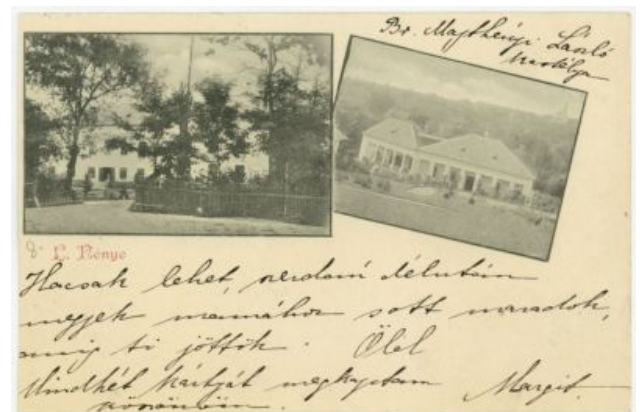 Br. Majthényi László
kastélya
L. Nénye
Hacsak lehet, szerdán délután
megyek mamához s ott maradok,
amíg ti jöttök. Ölel
Mindkét kártyát megkaptam Margit.
köszönöm.